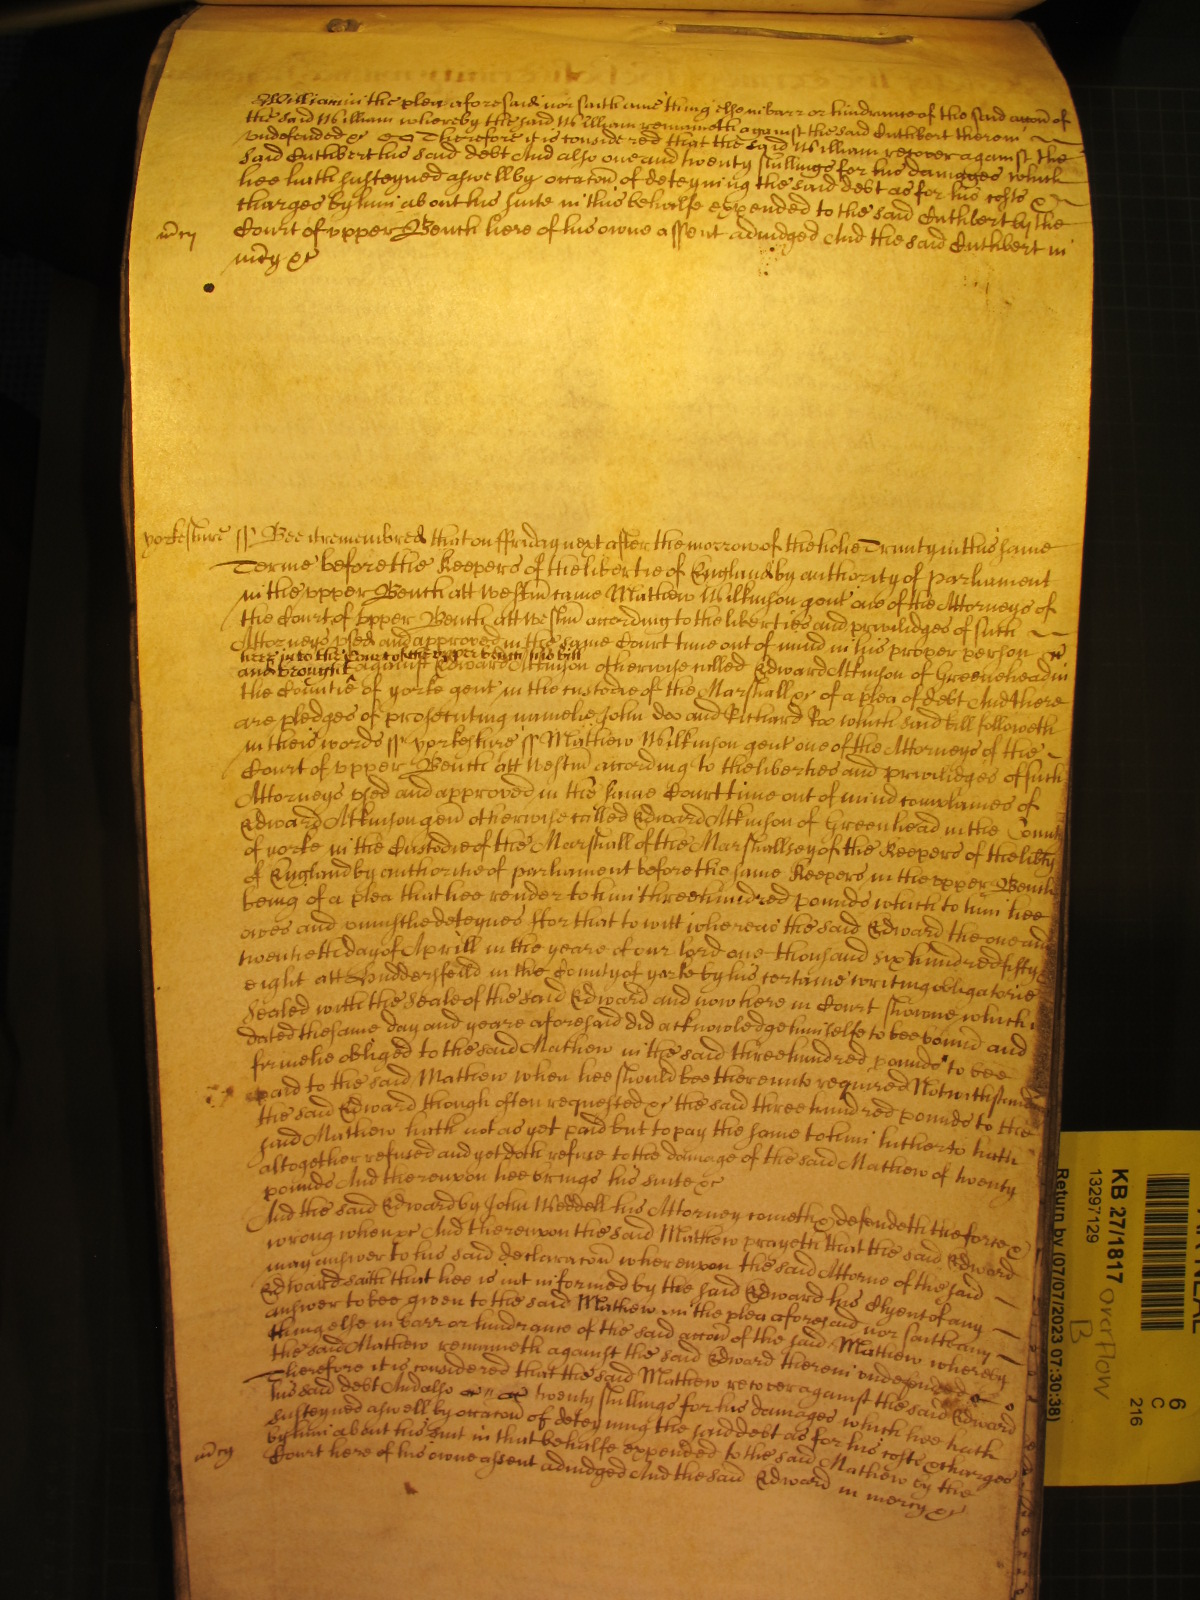 William in the plea aforesaid nor saith any thing else in barr or hindrance of the said accon of
the said William whereby the said William remaineth against the said Cuthbert therein
undefended &c Therefore it is considered that the said William recover against the
said Cuthbert his said debt And also one and twenty shillings for his damages which
hee hath susteyned aswell by occacon of deteyning the said debt as for his costs &
charges by him about his suite in this behalfe expended to the said Cuthbert by the
mcy Court of upper Bench here of his owne assent adiudged And the said Cuthbert in
mcy &c
yorkeshire ss Bee it remembred that on ffriday next after the morrow of the holie Trinity in this same
Terme before the Keepers of the libertie of England by authority of Parliament
in the upper Bench att Westm came Mathew Wilkinson gent one of the Attorneys of
the Court of upper Bench att Westm according to the liberties and priviliges of such
Attorneys used and approved in the same Court time out of mind in his proper person
here into the Court of the upper bench his bill
and brought against Edward Atkinson otherwise called Edward Atkinson of Greenehead in
the Countie of yorke gent in the custodie of the Marshall &c of a plea of debt And there
are pledges of prosecuting namelie John Doo and Richard Roo which said bill followeth
in theis words ss yorkeshire ss Mathew Wilkinson gent one of the Attorneys of the
Court of upper Bench att Westm according to the liberties and priviliges of such
Attorneys used and approved in the same Court time out of mind complaines of
Edward Atkinson gen otherwise called Edward Atkinson of Greenhead in the County
of yorke in the Custodie of the Marshall of the Marshallsey of the Keepers of the libty
of England by authoritie of parliament before the same Keepers in the upper Bench
being of a plea that hee render to him three hundred pounds which to him hee
owes and uniustlie deteynes ffor that to witt whereas the said Edward the one and
twentieth day of Aprill in the yeare of our lord one thousand six hundred fifty
eight att Huddersfeild in the County of yorke by his certaine writing obligatorie
Sealed with the Seale of the said Edward and now here in Court showne which is
dated the same day and yeare aforesaid did acknowledge himselfe to bee bound and
firmelie obliged to the said Mathew in the said three hundred pounds to bee
paid to the said Mathew when hee should bee thereunto required Notwithstanding
the said Edward though often requested &c the said three hundred pounds to the
said Mathew hath not as yet paid but to pay the same to him hitherto hath
altogether refused and yet doth refuse to the damage of the said Mathew of twenty
pounds And thereupon hee brings his suite &c
And the said Edward by John Weddell his Attorney cometh & defendeth the force &
wrong when &c And thereupon the said Mathew prayeth that the said Edward
may answer to his said declaracon whereupon the said Attorne of the said
Edward saith that hee is not informed by the said Edward his Clyent of any
answer to bee given to the said Mathew in the plea aforesaid nor saith any
thing else in barr or hindrance of the said accon of the said Mathew whereby
the said Mathew remaineth against the said Edward therein undefended &c
Therefore it is considered that the said Mathew recover against the said Edward
his said debt And also twenty shillings for his damages which hee hath
susteyned aswell by occacon of deteyning the said debt as for his costs & charges
by him about his suit in that behalfe expended to the said Mathew by the
mcy Court here of his owne assent adiudged And the said Edward in mercy &c
KB 27/1817 overflow
13297129
B
Return by (07/07/2023 07:30:38)
6
C
216